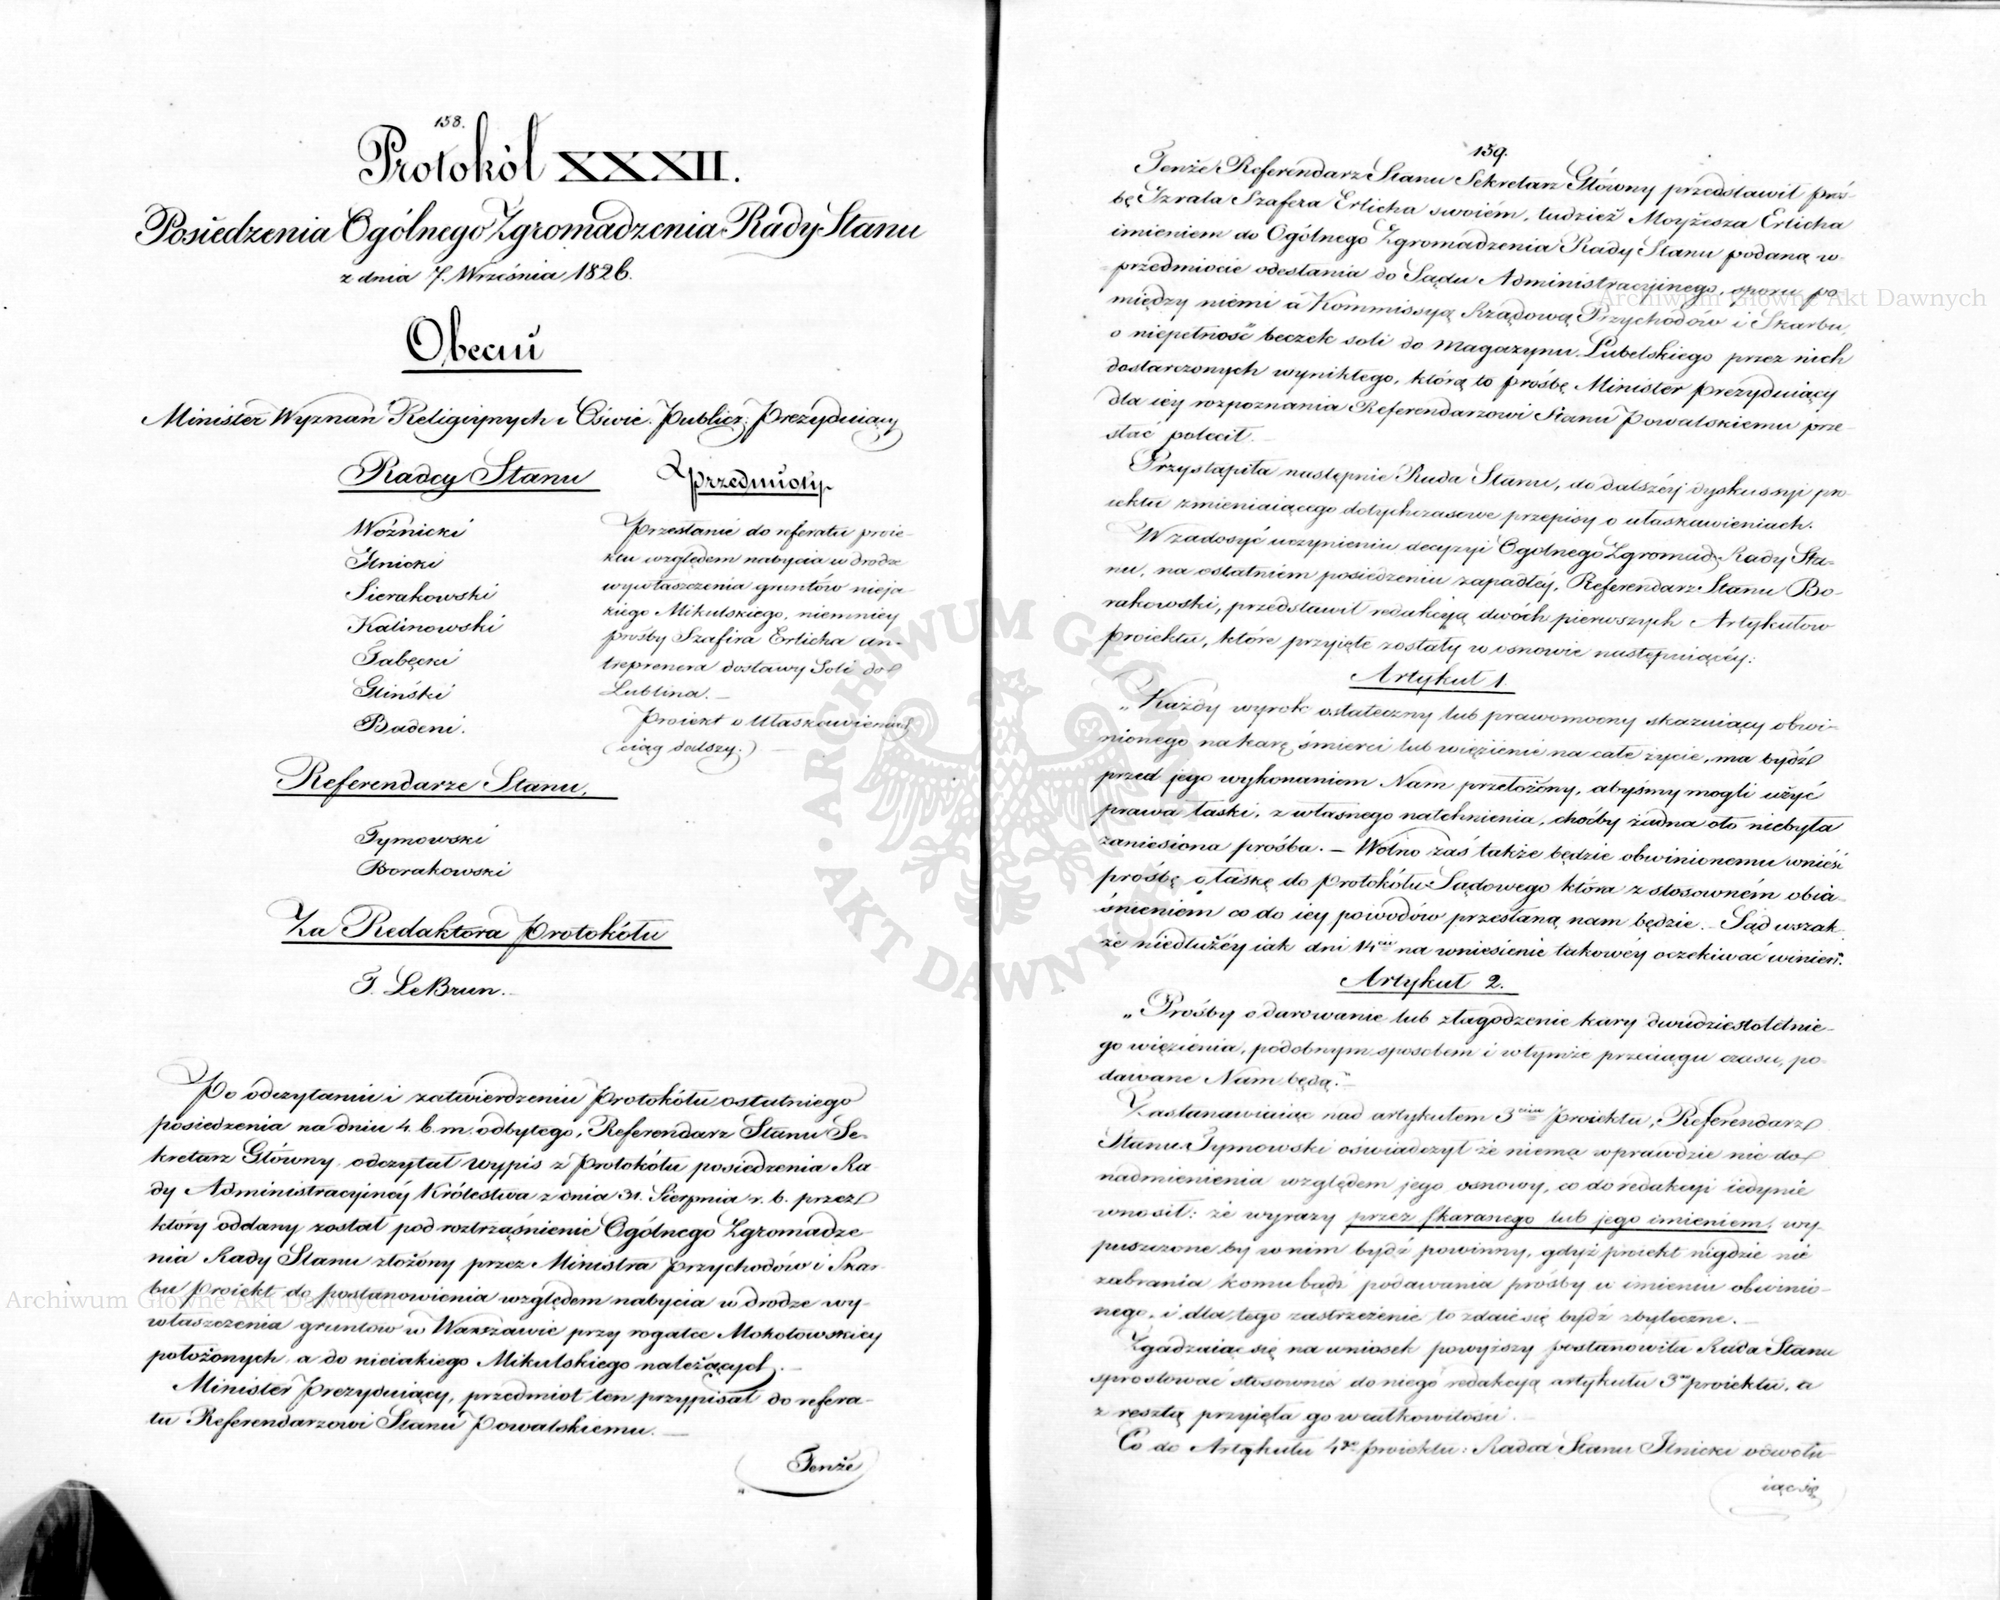 158.
Protokół XXXII.
Posiedzenia Ogólnego Zgromadzenia Rady Stanu
z dnia 7. Września 1826.
Obecni
Minister Wyznań Religiynych i Oświe. Publicz: Prezyduiący
Radcy Stanu
Woźnicki
Ilnicki
Sierakowski
Kalinowski
Tabęcki
Gliński
Badeni.
Referendarze Stanu,
Tymowski
Borakowski
Za Redaktora Protokółu
T. LeBrun.
Przedmioty
Przesłanie do referatu proie-
ktu względem nabycia w drodze
wywłaszczenia gruntów nieja-
kiego Mikulskiego, niemniey
prośby Szafira Erlicha an-
treprenera dostawy Soli do
Lublina. —
Proiekt o Ułaskawieniach
(ciąg dalszy.) —
Po odczytaniu i zatwierdzeniu Protokółu ostatniego
posiedzenia na dniu 4. b. m. odbytego, Referendarz Stanu Se-
kretarz Główny odczytał wypis z Protokółu posiedzenia Ra-
dy Administracyjnéy Królestwa z dnia 31. Sierpnia r. b. przez
który oddany został pod roztrząśnienie Ogólnego Zgromadze-
nia Rady Stanu złożony przez Ministra Przychodów i Skar-
bu Proiekt do postanowienia względem nabycia w drodze wy-
właszczenia gruntów w Warszawie przy rogatce Mokotowskiey
położonych, a do nieiakiego Mikulskiego należących. —
Minister Prezyduiący, przedmiot ten przypisał do refera-
tu Referendarzowi Stanu Powalskiemu. —
Tenże
159.
Tenże Referendarz Stanu Sekretarz Główny przedstawił proś-
bę Izrala Szafera Erlicha swoiém, tudzież Moyżesza Erlicha
imieniem do Ogólnego Zgromadzenia Rady Stanu podaną w
przedmiocie odesłania do Sądu Administracyinego, sporu po-
między niemi a Kommissyą Rządową Przychodów i Skarbu,
o niepełność beczek soli do Magazynu Lubelskiego przez nich
dostarczonych wynikłego, którą to prośbę Minister Prezyduiący
dla iey rozpoznania Referendarzowi Stanu Powalskiemu prze-
słać polecił. —
Przystąpiła następnie Rada Stanu, do dalszéy dyskussyi pro-
iektu zmieniaiącego dotychczasowe przepisy o ułaskawieniach.
W zadosyć uczynieniu decyzyi Ogolnego Zgromad: Rady Sta-
nu, na ostatniém posiedzeniu zapadłéj, Referendarz Stanu Bo-
rakowski, przedstawił redakcyą dwóch pierwszych Artykułow
Proiektu, które przyięte zostały w osnowie następuiącéy:
Artykuł 1.
„Każdy wyrok ostateczny lub prawomocny skazuiący obwi-
nionego na karę śmierci lub więzienie na całe życie, ma bydź
przed jego wykonaniem Nam przełożony, abyśmy mogli użyć
prawa łaski, z własnego natchnienia, choćby żadna oto niebyła
zaniesiona prośba. — Wolno zaś także będzie obwinionemu wnieść
prośbę o łaskę do protokółu Sądowego która z stosowném obia-
śnieniém co do iey powodów przesłaną nam będzie. — Sąd wszak-
że niedłużéy iak dni 14cie na wniesienie takowéy oczekiwać winien".
Artykuł 2.
„Prośby o darowanie lub złagodzenie kary dwudziestoletnie-
go więzienia, podobnym sposobem i w tymże przeciągu czasu, po-
dawane Nam będą." —
Zastanawiaiąc nad artykułem 3cim Proiektu, Referendarz
Stanu Tymowski oświadczył że niema wprawdzie nic do
nadmienienia względem jego osnowy, co do redakcyi iedynie
wnosił: że wyrazy przez skaranego lub jego imieniem, wy-
puszczone by w nim bydź powinny, gdyż proiekt nigdzie nie
zabrania komubądź podawania prośby w imieniu obwinio-
nego, i dla tego zastrzeżenie to zdaie się bydź zbyteczne. —
Zgadzaiąc się na wniosek powyższy postanowiła Rada Stanu
sprostować stosownie do niego redakcyą artykułu 3go proiektu, a
z resztą przyięła go w całkowitości. —
Co do Artykułu 4go proiektu: Radca Stanu Ilnicki odwołu-
iąc się
Archiwum Główne Akt Dawnych
Archiwum Główne Akt Dawnych
ARCHIWUM GŁÓWNE • AKT DAWNYCH •